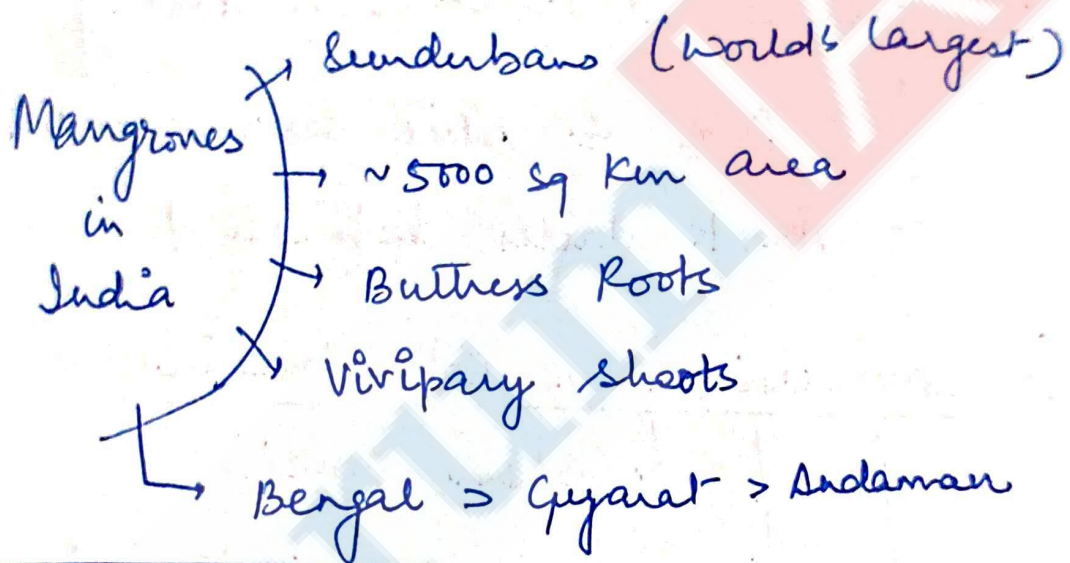 Mangroves
in
India
Sunderbans (World's largest)
~5000 sq Km area
Buttress Roots
Vivipary shoots
Bengal > Gujarat > Andaman
rum